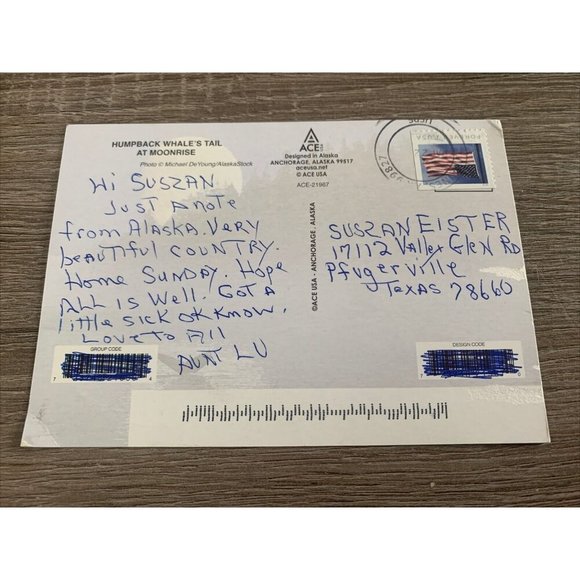 HUMPBACK WHALE'S TAIL
AT MOONRISE
Photo © Michael DeYoung/AlaskaStock
Hi SUSZAN
Just A note
from ALASKA. Very
beautiful COUNTRY.
Home SUNDAY. Hope
ALL is Well. GOT A
little sick OK KNOW.
LOVE TO All
AUNT LU
ACE
USA
Designed in Alaska
ANCHORAGE, ALASKA 99517
aceusa.net
© ACE USA
ACE-21967
©ACE USA - ANCHORAGE, ALASKA
99827
FOREVER / USA
SUSZAN EISTER
17112 Valley Glen RD
Pfugerville
TEXAS 78660
GROUP CODE
7
4
DESIGN CODE
7